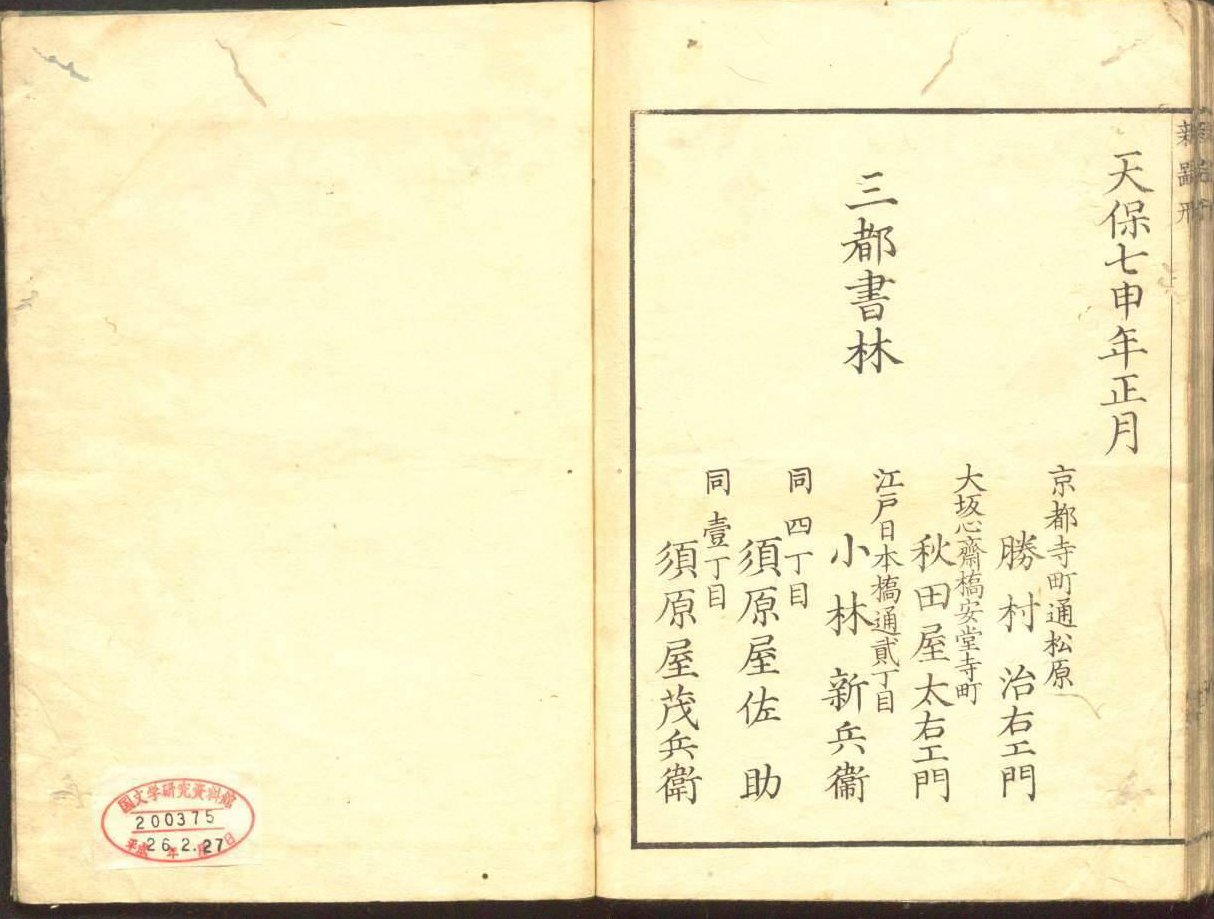 新器形
天保七申年正月
三都書林
京都寺町通松原
勝村治右エ門
大坂心齋橋安堂寺町
秋田屋太右エ門
江戸日本橋通貳丁目
小林新兵衞
同四丁目
須原屋佐助
同壹丁目
須原屋茂兵衛
国文学研究資料館
200375
平成26年2.27日